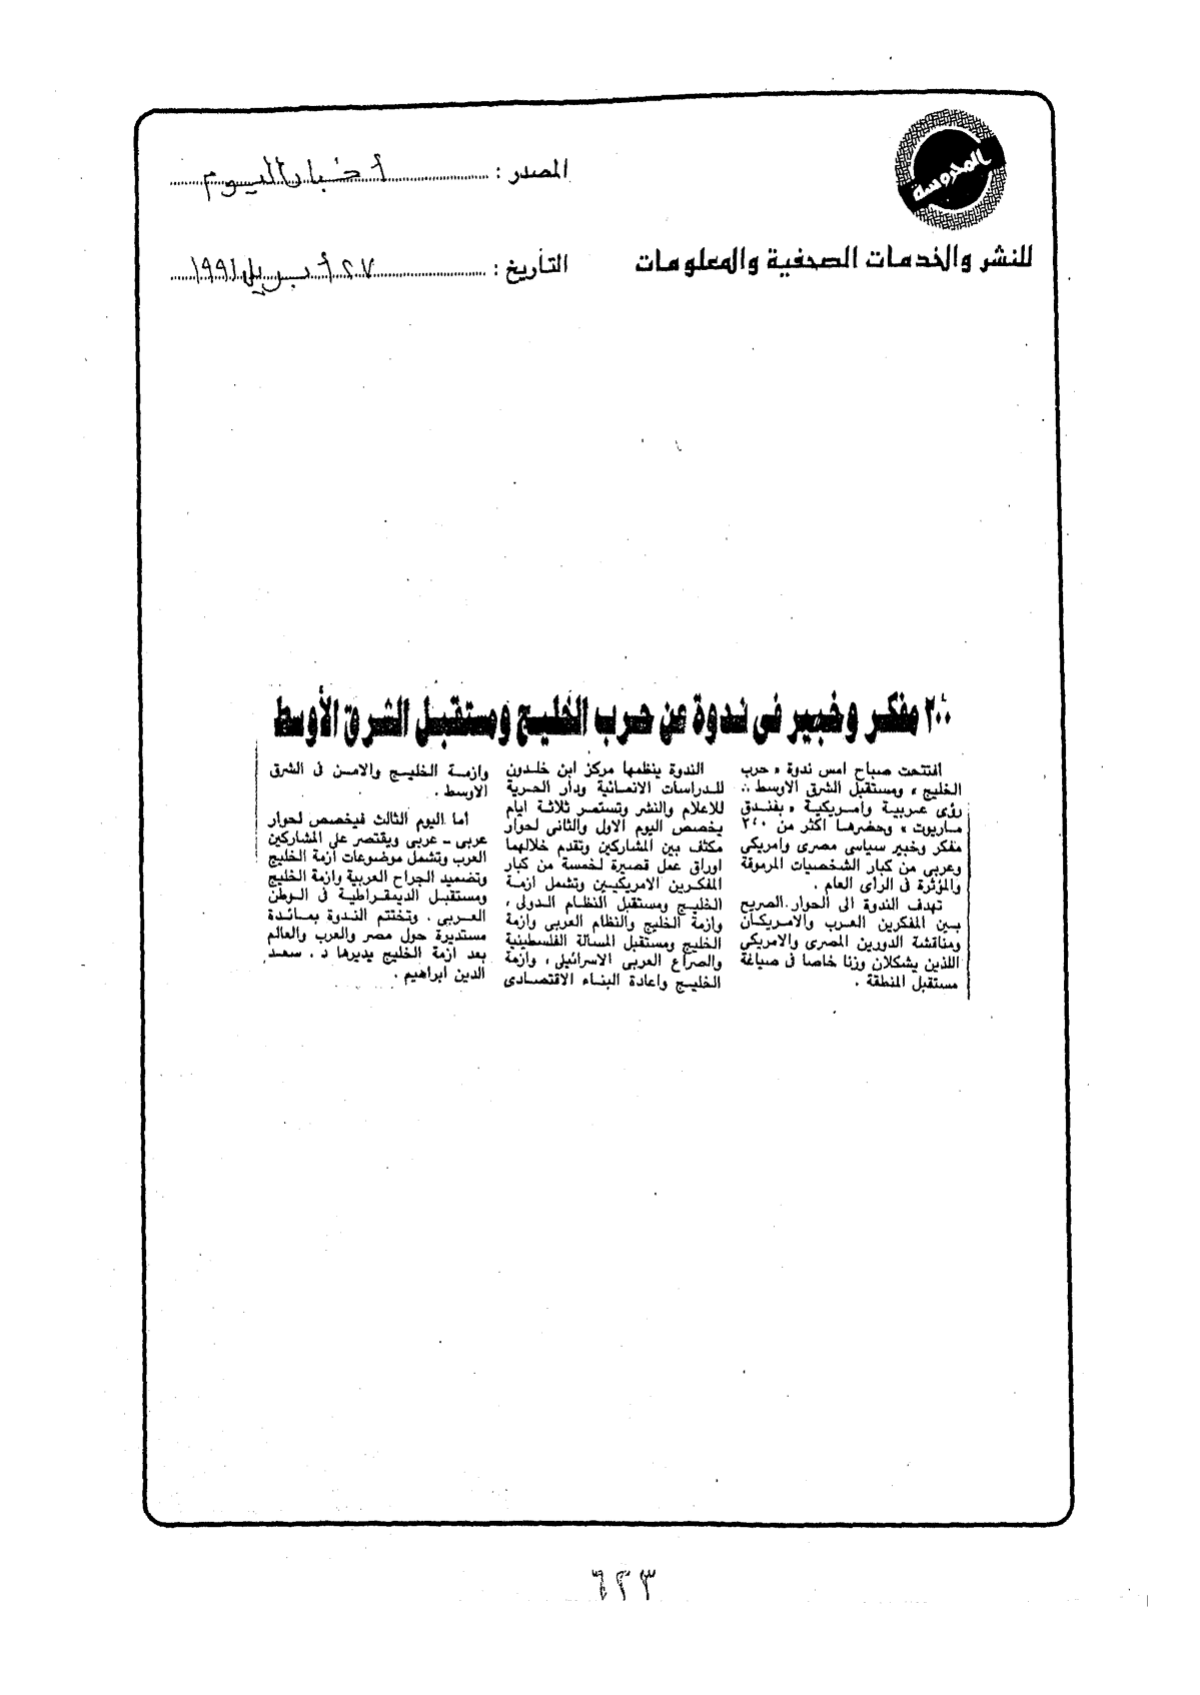 المحروسة
المصدر : أخبار اليوم
للنشر والخدمات الصحفية والمعلومات
التأريخ : ٢٧ أبريل ١٩٩١
٢٠٠ مفكر وخبير فى ندوة عن حرب الخليج ومستقبل الشرق الأوسط
افتتحت صباح امس ندوة « حرب
الخليج ، ومستقبل الشرق الاوسط ..
رؤى عربية وامريكية » بفندق
ماريوت ، وحضرها اكثر من ٢٠٠
مفكر وخبير سياسى مصرى وامريكى
وعربى من كبار الشخصيات المرموقة
والمؤثرة فى الراى العام .
تهدف الندوة الى الحوار الصريح
بين المفكرين العرب والامريكان
ومناقشة الدورين المصرى والامريكى
اللذين يشكلان وزنا خاصا فى صياغة
مستقبل المنطقة .
الندوة ينظمها مركز ابن خلدون
للدراسات الانمائية ودار الحرية
للاعلام والنشر وتستمر ثلاثة ايام
يخصص اليوم الاول والثانى لحوار
مكثف بين المشاركين وتقدم خلالهما
اوراق عمل قصيرة لخمسة من كبار
المفكرين الامريكيين وتشمل ازمة
الخليج ومستقبل النظام الدولى ،
وازمة الخليج والنظام العربى وازمة
الخليج ومستقبل المسالة الفلسطينية
والصراع العربى الاسرائيلى ، وازمة
الخليج واعادة البناء الاقتصادى
وازمة الخليج والامن فى الشرق
الاوسط .
أما اليوم الثالث فيخصص لحوار
عربى - عربى ويقتصر على المشاركين
العرب وتشمل موضوعات ازمة الخليج
وتضميد الجراح العربية وازمة الخليج
ومستقبل الديمقراطية فى الوطن
العربى . وتختتم الندوة بمائدة
مستديرة حول مصر والعرب والعالم
بعد ازمة الخليج يديرها د . سعد
الدين ابراهيم .
٦٢٣